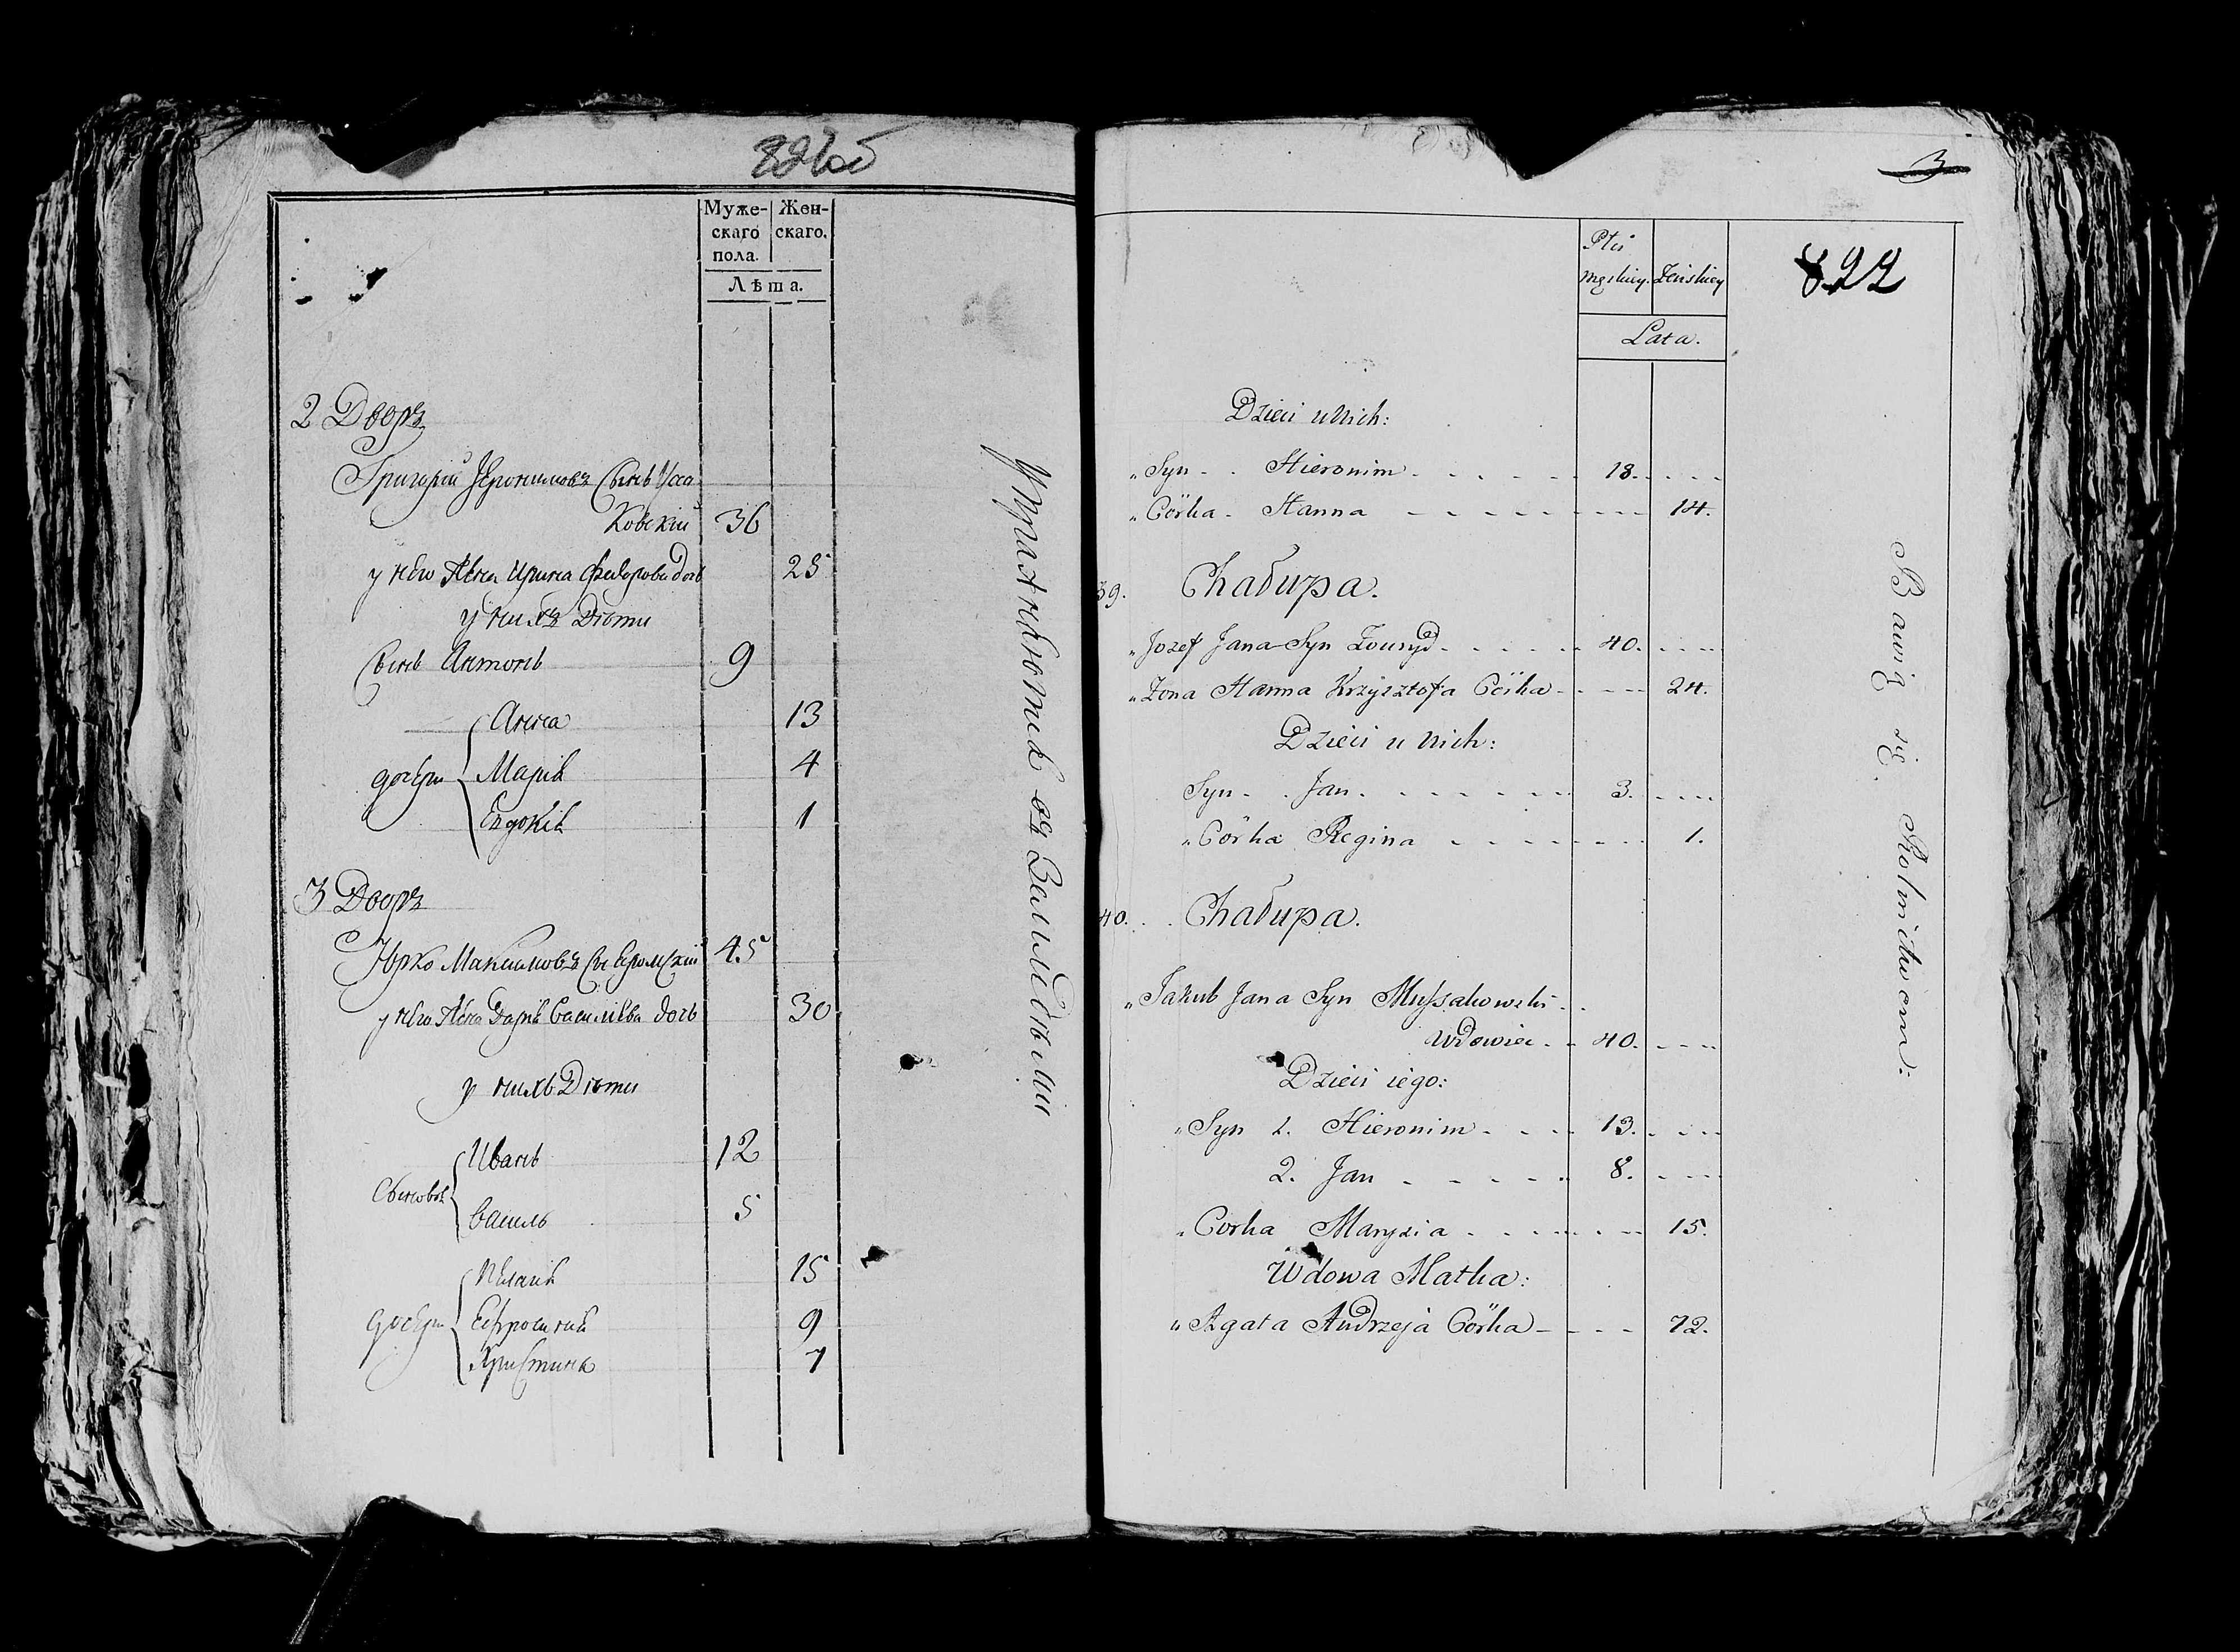 821об
Муже-
скаго
пола.
Жен-
скаго.
Лѣта.
2 Дворъ
Григорій Іеронимовъ Сынъ Усса
ковскій 36
у него Жена Ирина Федорова дочь 25
у нихъ Дѣти
Сынъ Антонъ 9
дочери Анна 13
Марія 4
Евдокія 1
3 Дворъ
Юрко Максимовъ 45
у него Жена Дарія Васильева дочь 30
у нихъ Дѣти
Сыновья Иванъ 12
Василь 5
дочери Пелагія 15
Ефросинія 9
Христина 7
Упражняются въ Землѣделіи
3
822
Płci
męskiey. Żeńskiey
Lata.
Dzieci u Nich:
„Syn - Hieronim 18.
„Córka - Hanna 14.
39. Chaбира.
„Jozef Jana Syn 40.
„Żona Hanna Krzysztofa Córka 24.
Dzieci u Nich:
Syn - Jan 3.
„Córka Regina 1.
40. Chaбира.
„Jakub Jana Syn Mussakowski
Wdowiec 40.
Dzieci iego:
„Syn 1. Hieronim 13.
2. Jan 8.
„Corka Maryzia 15.
Wdowa Matka:
„Agata Andrzeja Córka 72.
Bawią się Rolnictwem: